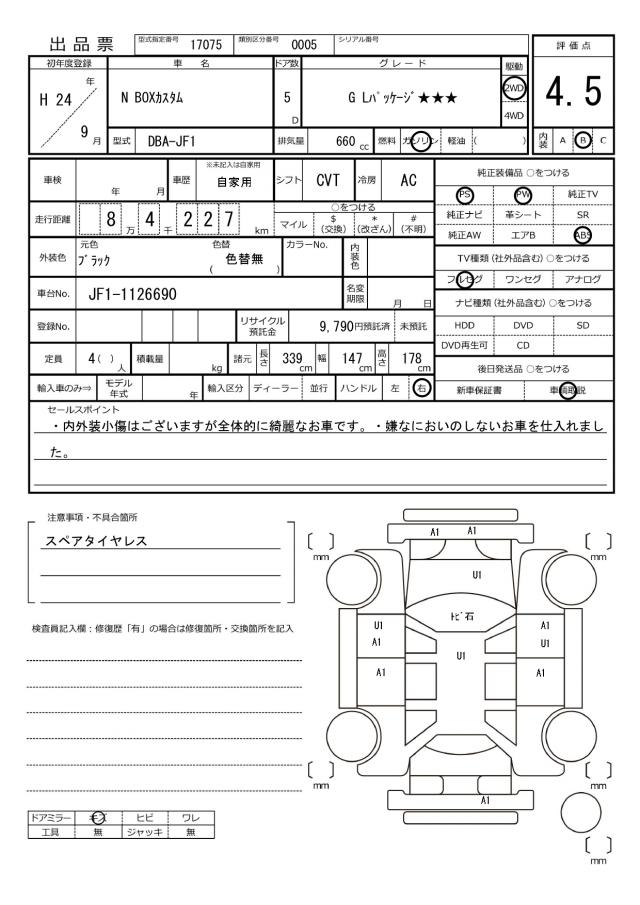 出品票 型式指定番号 17075 類別区分番号 0005 シリアル番号
評価点
4.5
内装 A B C
初年度登録 車名 ドア数 グレード 駆動
H 24 年 9 月
N BOXカスタム 5 D G Lパッケージ★★★ 2WD 4WD
型式 DBA-JF1 排気量 660 cc 燃料 ガソリン 軽油 ( )
車検 年 月 車歴 ※未記入は自家用 自家用 シフト CVT 冷房 AC
走行距離 8 万 4 千 2 2 7 km
○をつける
マイル $(交換) *(改ざん) #(不明)
外装色 元色 ブラック 色替 ( 色替無 ) カラーNo. 内装色
車台No. JF1-1126690 名変期限 月 日
登録No. リサイクル預託金 9,790円預託済 未預託
定員 4( )人 積載量 kg 諸元 長さ 339cm 幅 147cm 高さ 178cm
輸入車のみ⇒ モデル年式 年 輸入区分 ディーラー 並行 ハンドル 左 右
純正装備品 ○をつける
PS PW 純正TV
純正ナビ 革シート SR
純正AW エアB ABS
TV種類(社外品含む)○をつける
フルセグ ワンセグ アナログ
ナビ種類(社外品含む)○をつける
HDD DVD SD
DVD再生可 CD
後日発送品 ○をつける
新車保証書 車輌取説
セールスポイント
・内外装小傷はございますが全体的に綺麗なお車です。・嫌なにおいのしないお車を仕入れまし
た。
注意事項・不具合箇所
スペアタイヤレス
検査員記入欄：修復歴「有」の場合は修復箇所・交換箇所を記入
ドアミラー キズ ヒビ ワレ
工具 無 ジャッキ 無
A1 A1
mm mm
U1
トビ石
U1 A1
A1 U1 U1
A1 A1
mm mm
A1
mm